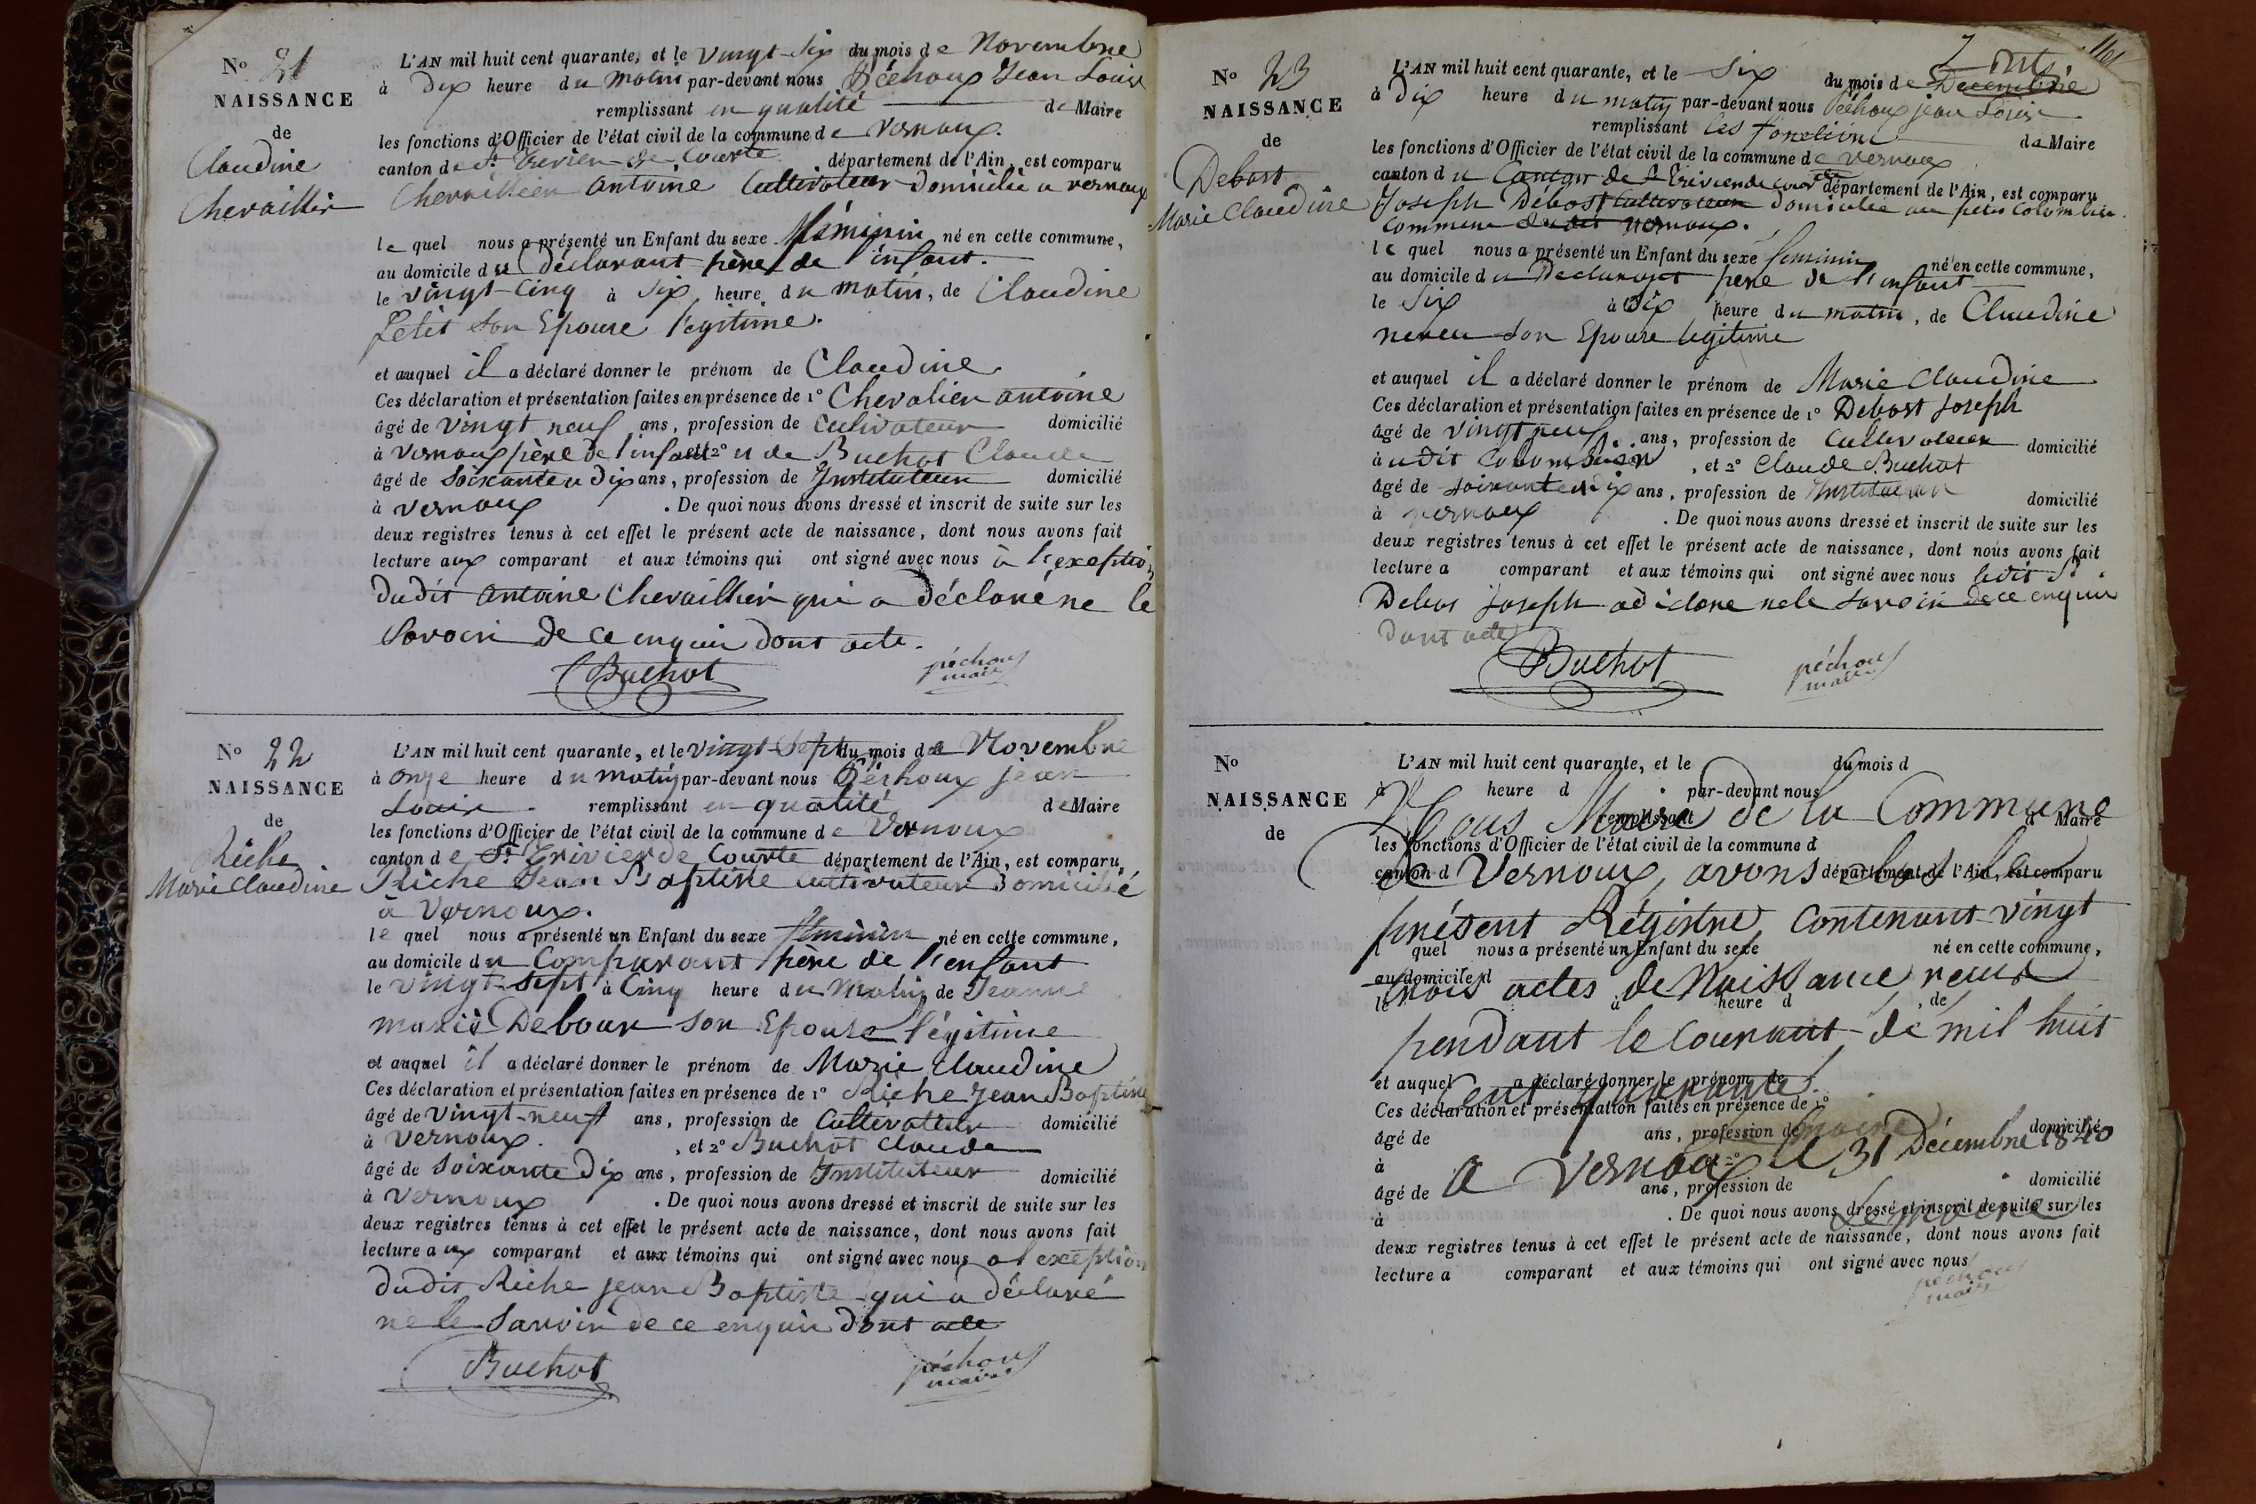 N° 21
NAISSANCE
de
Claudine
Chevaillier
L'AN mil huit cent quarante, et le vingt-six du mois de Novembre
à Dix heure du matin par-devant nous Péchoux Jean Louis
remplissant en qualité de Maire
les fonctions d'Officier de l'état civil de la commune de Vernoux.
canton de St Trivier de Courte département de l'Ain, est comparu
Chevaillier Antoine Cultivateur Domicilié a vernoux
le quel nous a présenté un Enfant du sexe Féminin né en cette commune,
au domicile du Déclarant père de l'enfant.
le vingt-Cinq à Six heure du matin, de Claudine
Petit son Epouse légitime.
et auquel il a déclaré donner le prénom de Claudine
Ces déclaration et présentation faites en présence de 1° Chevalier antoine
âgé de vingt neuf ans, profession de Cultivateur domicilié
à Vernoux père de l'enfant et 2° de Buchot Claude
âgé de Soixante Dix ans, profession de Instituteur domicilié
à Vernoux . De quoi nous avons dressé et inscrit de suite sur les
deux registres tenus à cet effet le présent acte de naissance, dont nous avons fait
lecture aux comparant et aux témoins qui ont signé avec nous à l'exeption
Dudit Antoine Chevaillier qui a déclaré ne le
Savoir de ce enquis dont acte.
Buchot
péchoux
maire
N° 22
NAISSANCE
de
Riche
Marie Claudine
L'AN mil huit cent quarante, et le vingt-Sept du mois de Novembre
à onze heure du matin par-devant nous Péchoux jean
Louis remplissant en qualité de Maire
les fonctions d'Officier de l'état civil de la commune de Vernoux
canton de St Trivier de Courte département de l'Ain, est comparu
Riche Jean Baptiste Cultivateur Domicilié
à Vernoux.
le quel nous a présenté un Enfant du sexe féminin né en cette commune,
au domicile du Comparant père de l'enfant
le vingt-sept à Cinq heure du matin de Jeanne
marie Debour son Epouse légitime
et auquel il a déclaré donner le prénom de Marie Claudine
Ces déclaration et présentation faites en présence de 1° Riche Jean Baptiste
âgé de vingt-neuf ans, profession de Cultivateur domicilié
à Vernoux. , et 2° Buchot Claude
âgé de Soixante Dix ans, profession de Instituteur domicilié
à Vernoux . De quoi nous avons dressé et inscrit de suite sur les
deux registres tenus à cet effet le présent acte de naissance, dont nous avons fait
lecture aux comparant et aux témoins qui ont signé avec nous a l'exception
dudit Riche jean Baptiste qui a déclaré
ne le Savoir de ce enquis dont acte
Buchot
péchoux
maire
N° 23
NAISSANCE
de
Debost
Marie Claudine
L'AN mil huit cent quarante, et le Six du mois de Decembre
à Dix heure du matin par-devant nous Péchoux jean Louis
remplissant les fonctions de Maire
les fonctions d'Officier de l'état civil de la commune de Vernoux
canton du Canton de St Trivier de Courte département de l'Ain, est comparu
Joseph Debost Cultivateur domicilié au petit Colombier
Commune dudit Vernoux.
le quel nous a présenté un Enfant du sexe feminin né en cette commune,
au domicile du Declarant père de l'enfant
le Six à Six heure du matin, de Claudine
neveu son Epouse legitime
et auquel il a déclaré donner le prénom de Marie Claudine
Ces déclaration et présentation faites en présence de 1° Debost Joseph
âgé de vingt neuf ans, profession de Cultivateur domicilié
à udit Colombier , et 2° Claude Buchot
âgé de soixante Dix ans, profession de Instituteur domicilié
à vernoux . De quoi nous avons dressé et inscrit de suite sur les
deux registres tenus à cet effet le présent acte de naissance, dont nous avons fait
lecture a comparant et aux témoins qui ont signé avec nous ledit Sr
Debos Joseph a déclaré ne le savoir de ce enquis
dont acte
Buchot
péchoux
maire
N°
NAISSANCE
de
L'AN mil huit cent quarante, et le du mois d
à heure d par-devant nous
remplissant d Maire
Nous Maire de la Commune
les fonctions d'Officier de l'état civil de la commune d
canton d département de l'Ain, est comparu
de Vernoux, avons clos le
présent Régistre, Contenant vingt
l quel nous a présenté un Enfant du sexe né en cette commune,
au domicile d
trois actes de Naissance reçus
le à heure d , de
pendant le Courant de mil huit
et auquel a déclaré donner le prénom de
cent quarante
Ces déclaration et présentation faites en présence de 1°
âgé de ans, profession de domicilié
à , et 2°
A Vernoux le 31 Décembre 1840
âgé de ans, profession de domicilié
à . De quoi nous avons dressé et inscrit de suite sur les
Le maire
deux registres tenus à cet effet le présent acte de naissance, dont nous avons fait
lecture a comparant et aux témoins qui ont signé avec nous
péchoux
maire